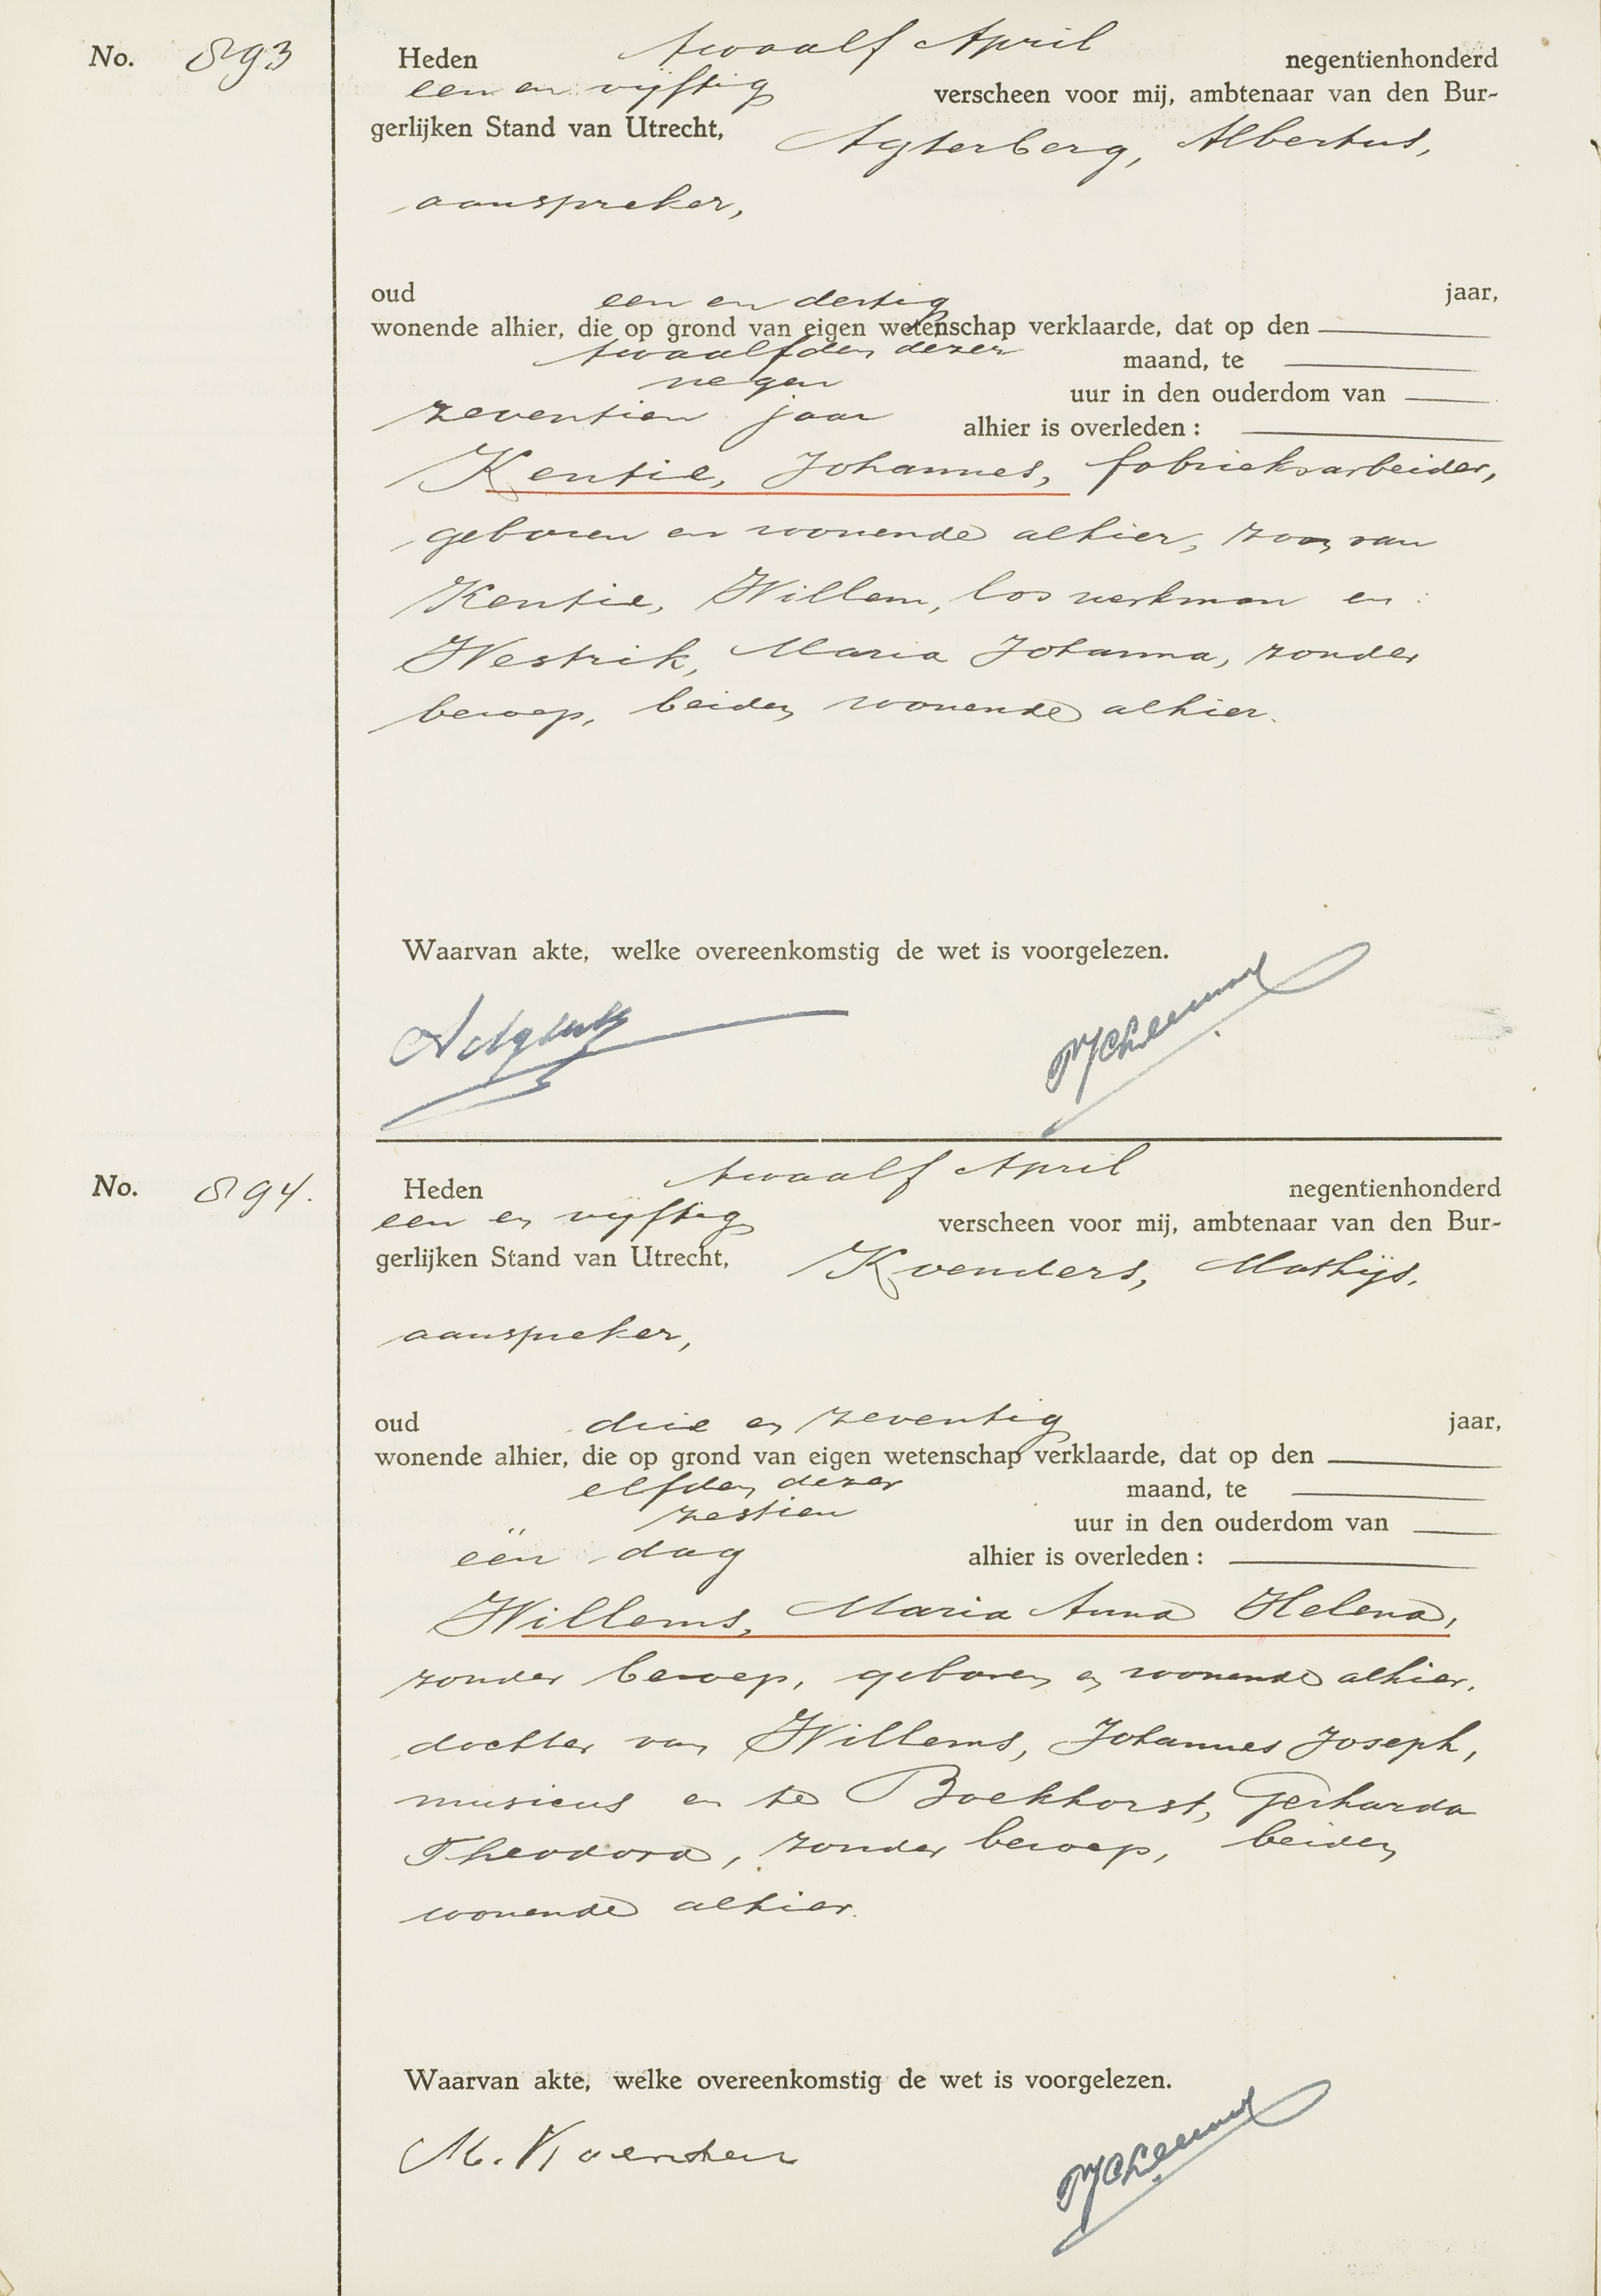 No. 893
Heden twaalf April negentienhonderd
een en vijftig verscheen voor mij, ambtenaar van den Bur-
gerlijken Stand van Utrecht, Agterberg, Albertus,
aanspreker,
oud een en dertig jaar,
wonende alhier, die op grond van eigen wetenschap verklaarde, dat op den
twaalfden dezer maand, te
negen uur in den ouderdom van
zeventien jaar alhier is overleden :
Kentie, Johannes, fabrieksarbeider,
geboren en wonende alhier, zoon van
Kentie, Willem, los werkman en
Westrik, Maria Johanna, zonder
beroep, beiden wonende alhier.
Waarvan akte, welke overeenkomstig de wet is voorgelezen.
No. 894.
Heden twaalf April negentienhonderd
een en vijftig verscheen voor mij, ambtenaar van den Bur-
gerlijken Stand van Utrecht, Koenders, Mathijs,
aanspreker,
oud drie en zeventig jaar,
wonende alhier, die op grond van eigen wetenschap verklaarde, dat op den
elfden dezer maand, te
zestien uur in den ouderdom van
één dag alhier is overleden :
Willems, Maria Anna Helena,
zonder beroep, geboren en wonende alhier,
dochter van Willems, Johannes Joseph,
musicus en te Boekhorst, Gerharda
Theodora, zonder beroep, beiden
wonende alhier.
Waarvan akte, welke overeenkomstig de wet is voorgelezen.
M. Koenders